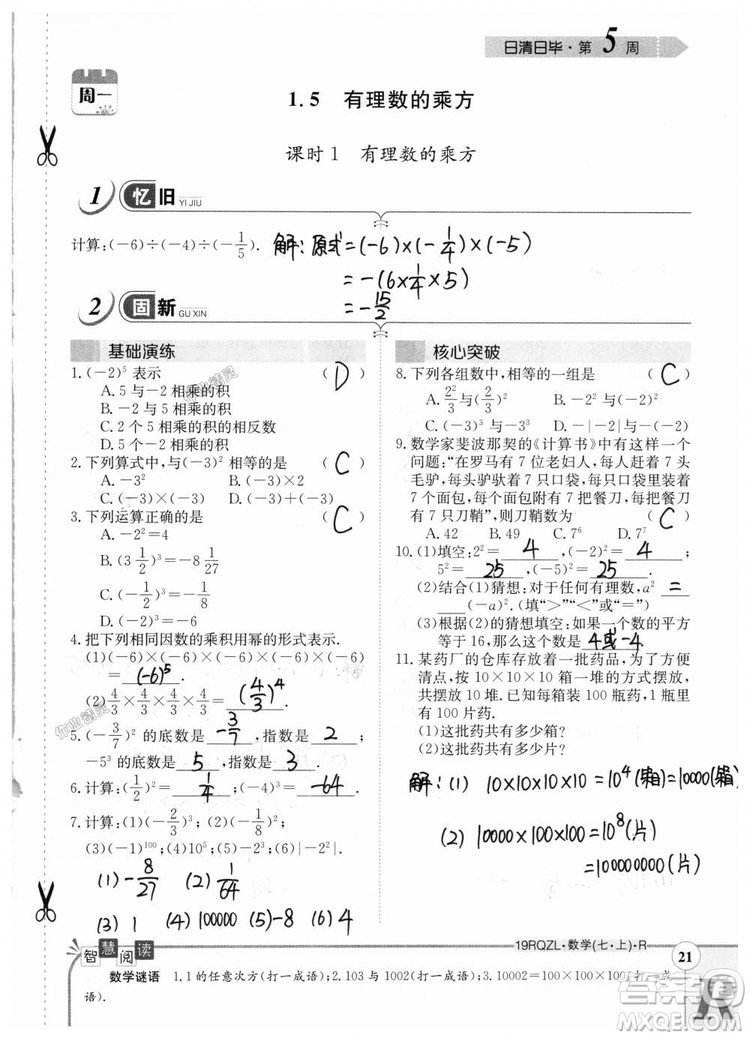 日清日毕·第5周
周一
1.5 有理数的乘方
课时1 有理数的乘方
1 忆旧 YI JIU
计算:(-6)÷(-4)÷(-1/5). 解:原式=(-6)×(-1/4)×(-5)
=-(6×1/4×5)
=-15/2
2 固新 GU XIN
基础演练
1.(-2)⁵ 表示 (D)
A. 5 与-2 相乘的积
B. 5 与 2 相乘的积
C. 2 个 5 相乘的积的相反数
D. 5 个-2 相乘的积
2.下列算式中,与(-3)² 相等的是 (C)
A. -3² B. (-3)×2
C. (-3)×(-3) D. (-3)+(-3)
3.下列运算正确的是 (C)
A. -2²=4
B. (3 1/2)³=-8 1/27
C. (-1/2)³=-1/8
D. (-2)³=-6
4.把下列相同因数的乘积用幂的形式表示.
(1)(-6)×(-6)×(-6)×(-6)×(-6)
=(-6)⁵.
(2)4/3×4/3×4/3×4/3=(4/3)⁴
5.(-3/7)² 的底数是-3/7,指数是2;
-5³ 的底数是5,指数是3.
6.计算:(-1/2)²=1/4,(-4)³=-64.
7.计算:(1)(-2/3)³;(2)(-1/8)²;
(3)(-1)¹⁰⁰;(4)10⁵;(5)-2³;(6)|-2²|.
(1)-8/27 (2)1/64
(3) 1 (4) 100000 (5)-8 (6) 4
核心突破
8.下列各组数中,相等的一组是 (C)
A. 2²/3 与(2/3)² B. -2² 与(-2)²
C. (-3)³ 与-3³ D. -|-2|与-(-2)
9.数学家斐波那契的《计算书》中有这样一个
问题:“在罗马有 7 位老妇人,每人赶着 7 头
毛驴,每头驴驮着 7 只口袋,每只口袋里装着
7 个面包,每个面包附有 7 把餐刀,每把餐刀
有 7 只刀鞘”,则刀鞘数为 (C)
A. 42 B. 49 C. 7⁶ D. 7⁷
10.(1)填空:2²=4,(-2)²=4;
5²=25,(-5)²=25.
(2)结合(1)猜想:对于任何有理数,a² =
(-a)².(填“>”“<”或“=”)
(3)根据(2)的猜想填空:如果一个数的平方
等于 16,那么这个数是4或-4.
11.某药厂的仓库存放着一批药品,为了方便
清点,按照 10×10×10 箱一堆的方式摆放,
共摆放 10 堆.已知每箱装 100 瓶药,1 瓶里
有 100 片药.
(1)这批药共有多少箱?
(2)这批药共有多少片?
解:(1) 10×10×10×10=10⁴(箱)=10000(箱)
(2) 10000×100×100=10⁸(片)
=100000000(片)
智慧阅读
19RQZL·数学(七·上)·R
21
数学谜语 1.1 的任意次方(打一成语);2.103 与 1002(打一成语);3.10002=100×100×100(打一成
语).